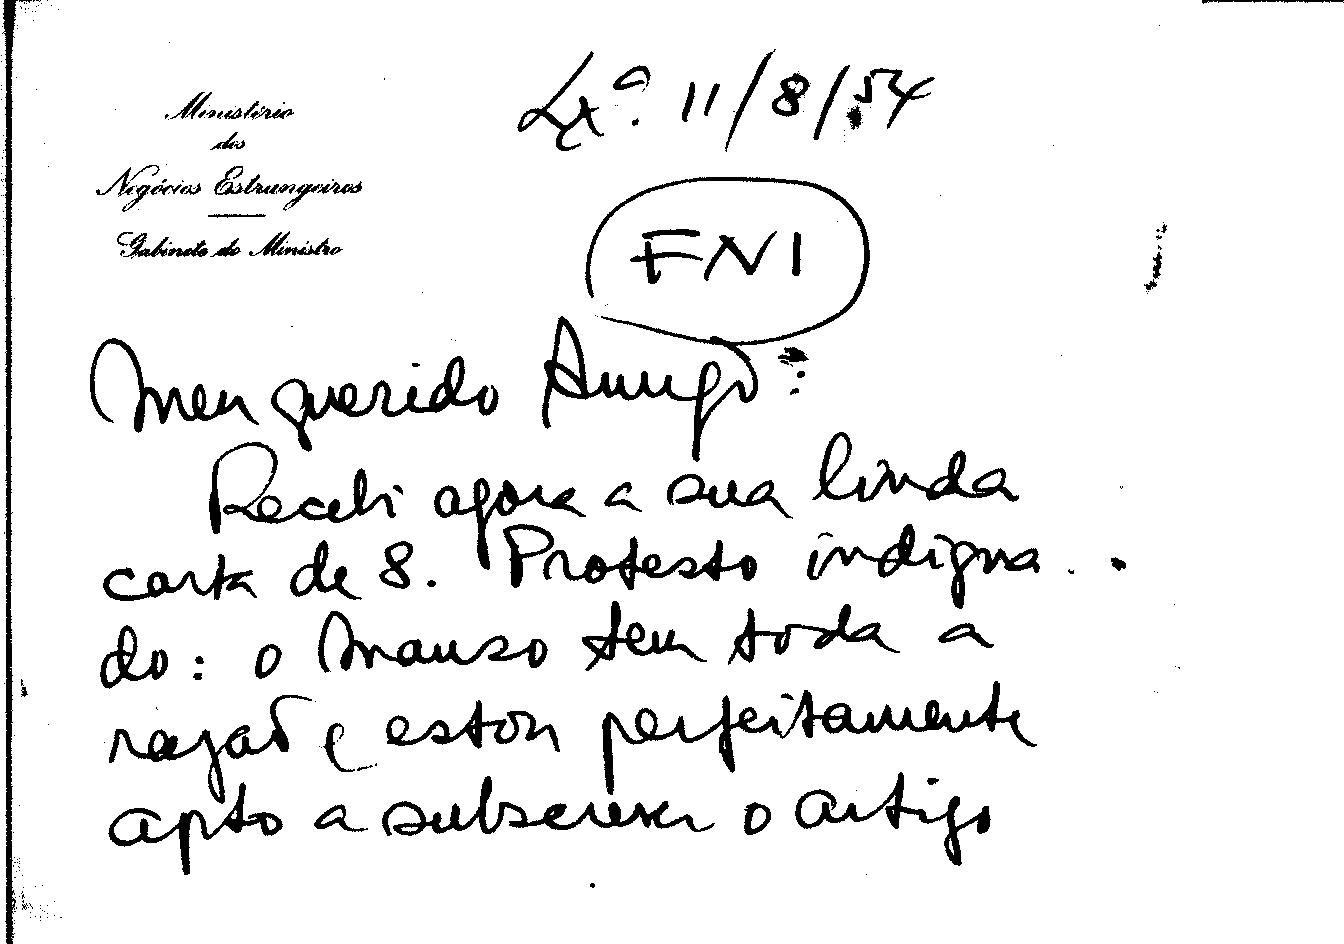 Ministério
dos
Negócios Estrangeiros
Gabinete do Ministro
Lxª. 11/8/54
FNI
Meu querido Amigo:
Recebi agora a sua linda
carta de 8. Protesto indigna-
do: o Manso tem toda a
razão e estou perfeitamente
apto a subscrever o artigo